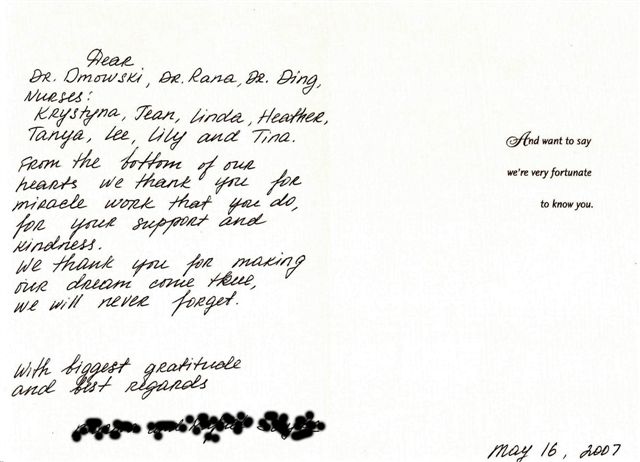 Dear
Dr. Dmowski, Dr. Rana, Dr. Ding,
Nurses:
Krystyna, Jean, Linda, Heather,
Tanya, Lee, Lily and Tina.
From the bottom of our
hearts we thank you for
miracle work that you do,
for your support and
kindness.
We thank you for making
our dream come true,
we will never forget.
With biggest gratitude
and best regards
And want to say
we're very fortunate
to know you.
May 16, 2007